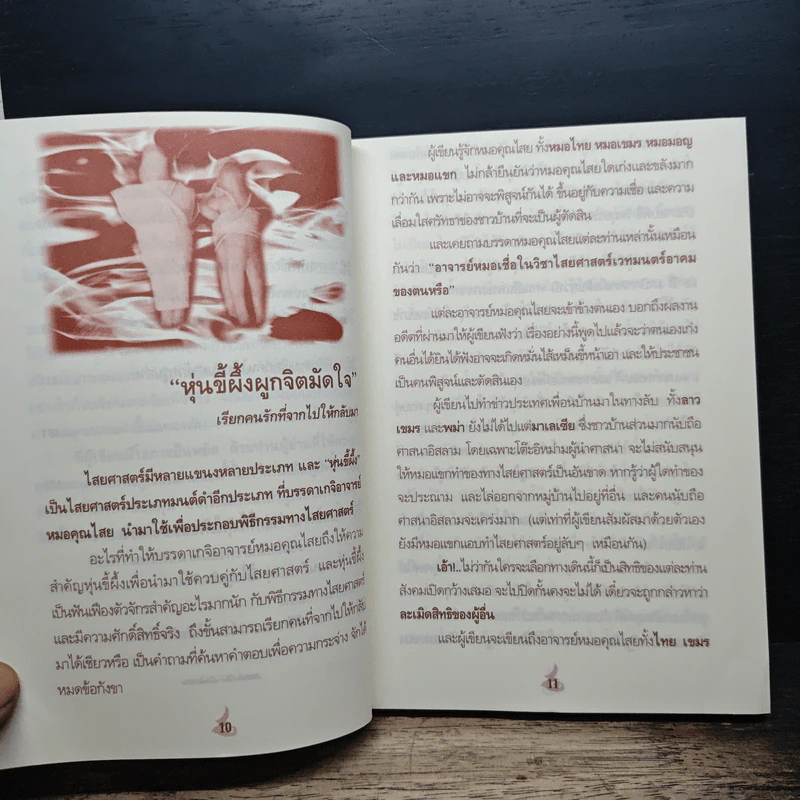 "หุ่นขี้ผึ้งผูกจิตมัดใจ"
เรียกคนรักที่จากไปให้กลับมา
ไสยศาสตร์มีหลายแขนงหลายประเภท และ "หุ่นขี้ผึ้ง"
เป็นไสยศาสตร์ประเภทมนต์ดำอีกประเภท ที่บรรดาเกจิอาจารย์
หมอคุณไสย นำมาใช้เพื่อประกอบพิธีกรรมทางไสยศาสตร์
อะไรที่ทำให้บรรดาเกจิอาจารย์หมอคุณไสยถึงให้ความ
สำคัญหุ่นขี้ผึ้งเพื่อนำมาใช้ควบคู่กับไสยศาสตร์ และหุ่นขี้ผึ้ง
เป็นฟันเฟืองตัวจักรสำคัญอะไรมากนัก กับพิธีกรรมทางไสยศาสตร์
และมีความศักดิ์สิทธิ์จริง ถึงขั้นสามารถเรียกคนที่จากไปให้กลับ
มาได้เชียวหรือ เป็นคำถามที่ค้นหาคำตอบเพื่อความกระจ่าง จักได้
หมดข้อกังขา
10
ผู้เขียนรู้จักหมอคุณไสย ทั้งหมอไทย หมอเขมร หมอมอญ
และหมอแขก ไม่กล้ายืนยันว่าหมอคุณไสยใดเก่งและขลังมาก
กว่ากัน เพราะไม่อาจจะพิสูจน์กันได้ ขึ้นอยู่กับความเชื่อ และความ
เลื่อมใสศรัทธาของชาวบ้านที่จะเป็นผู้ตัดสิน
และเคยถามบรรดาหมอคุณไสยแต่ละท่านเหล่านั้นเหมือน
กันว่า "อาจารย์หมอเชื่อในวิชาไสยศาสตร์เวทมนตร์อาคม
ของตนหรือ"
แต่ละอาจารย์หมอคุณไสยจะเข้าข้างตนเอง บอกถึงผลงาน
อดีตที่ผ่านมาให้ผู้เขียนฟังว่า เรื่องอย่างนี้พูดไปแล้วจะว่าตนเองเก่ง
คนอื่นได้ยินได้ฟังอาจจะเกิดหมั่นไส้เหม็นขี้หน้าเอา และให้ประชาชน
เป็นคนพิสูจน์และตัดสินเอง
ผู้เขียนไปทำข่าวประเทศเพื่อนบ้านมาในทางลับ ทั้งลาว
เขมร และพม่า ยังไม่ได้ไปแต่มาเลเซีย ซึ่งชาวบ้านส่วนมากนับถือ
ศาสนาอิสลาม โดยเฉพาะโต๊ะอิหม่ามผู้นำศาสนา จะไม่สนับสนุน
ให้หมอแขกทำของทางไสยศาสตร์เป็นอันขาด หากรู้ว่าผู้ใดทำของ
จะประณาม และไล่ออกจากหมู่บ้านไปอยู่ที่อื่น และคนนับถือ
ศาสนาอิสลามจะเคร่งมาก (แต่เท่าที่ผู้เขียนสัมผัสมาด้วยตัวเอง
ยังมีหมอแขกแอบทำไสยศาสตร์อยู่ลับๆ เหมือนกัน)
เอ้า!..ไม่ว่ากันใครจะเลือกทางเดินนี้ก็เป็นสิทธิของแต่ละท่าน
สังคมเปิดกว้างเสมอ จะไปปิดกั้นคงจะไม่ได้ เดี๋ยวจะถูกกล่าวหาว่า
ละเมิดสิทธิของผู้อื่น
และผู้เขียนจะเขียนถึงอาจารย์หมอคุณไสยทั้งไทย เขมร
11